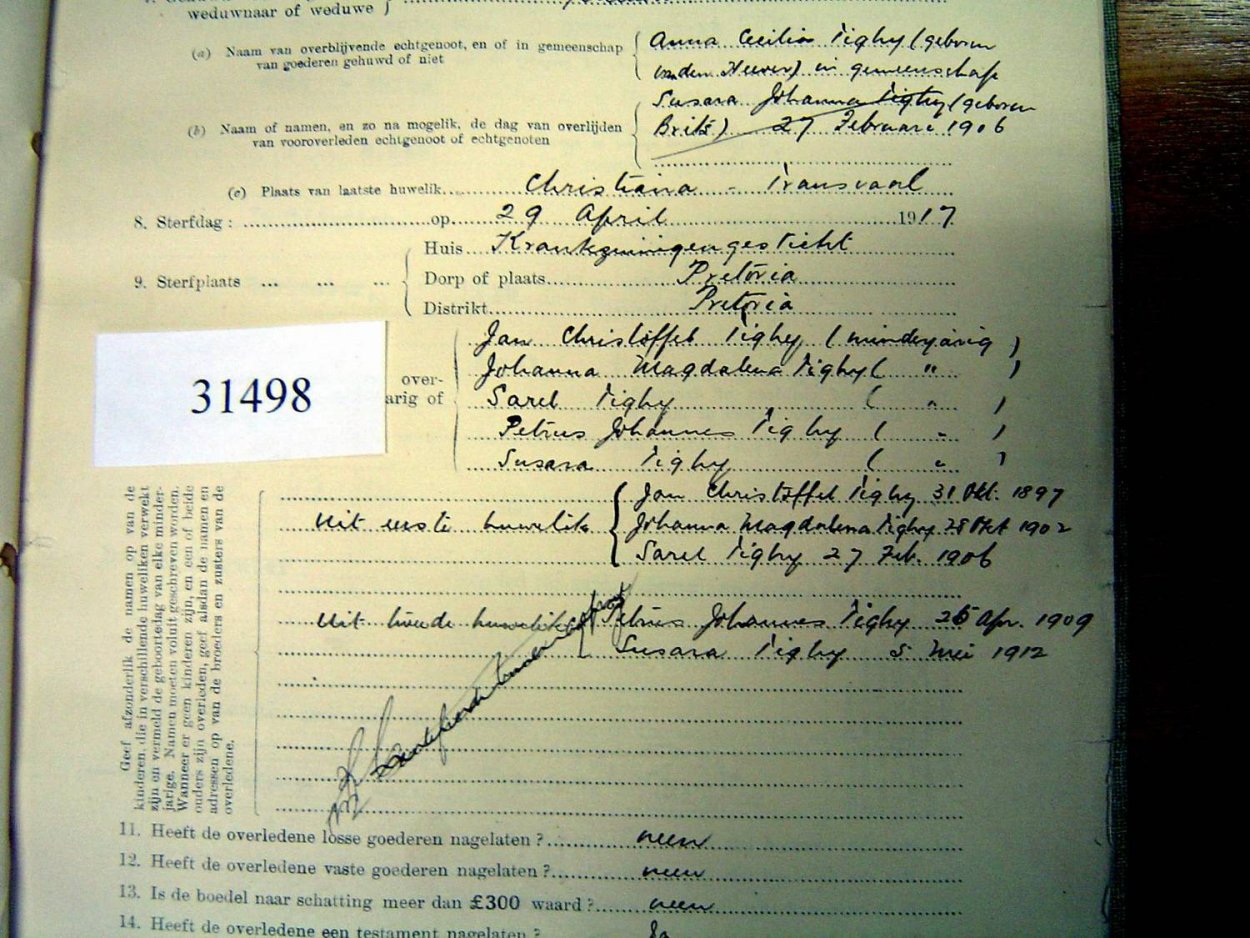 weduwnaar of weduwe }
(a) Naam van overblijvende echtgenoot, en of in gemeenschap
van goederen gehuwd of niet
Anna Cecilia Tighy (geboren
van den Heever) in gemeenschap
(b) Naam of namen, en zo na mogelik, de dag van overlijden
van vooroverleden echtgenoot of echtgenoten
Susara Johanna Tighy (geboren
Brits) 27 Februari 1906
(c) Plaats van laatste huwelik Christiana - Transvaal
8. Sterfdag: op 29 April 1917
9. Sterfplaats ... ... ...
Huis Krankzinnigengesticht
Dorp of plaats Pretoria
Distrikt Pretoria
31498
over-
arig of
Jan Christoffel Tighy (minderjarig)
Johanna Magdalena Tighy ( " )
Sarel Tighy ( " )
Petrus Johannes Tighy ( " )
Susara Tighy ( " )
Geef afzonderlik de namen op van de
kinderen, die in verschillende huweliken verwekt
zijn en vermeld de geboortedag van elke minder-
jarige. Namen moeten voluit geschreven worden.
Wanneer er geen kinderen zijn, en een of beide
ouders zijn overleden, geef alsdan de namen en
adressen op van de broeders en zusters van de
overledene.
Uit eerste huwelik
Jan Christoffel Tighy 31 Okt. 1897
Johanna Magdalena Tighy 28 Okt 1902
Sarel Tighy 27 Feb. 1906
Uit tweede huwelik
Petrus Johannes Tighy 25 Apr. 1909
Susara Tighy 5 Mei 1912
11. Heeft de overledene losse goederen nagelaten? neen
12. Heeft de overledene vaste goederen nagelaten? neen
13. Is de boedel naar schatting meer dan £300 waard? neen
14. Heeft de overledene een testament nagelaten? Ja